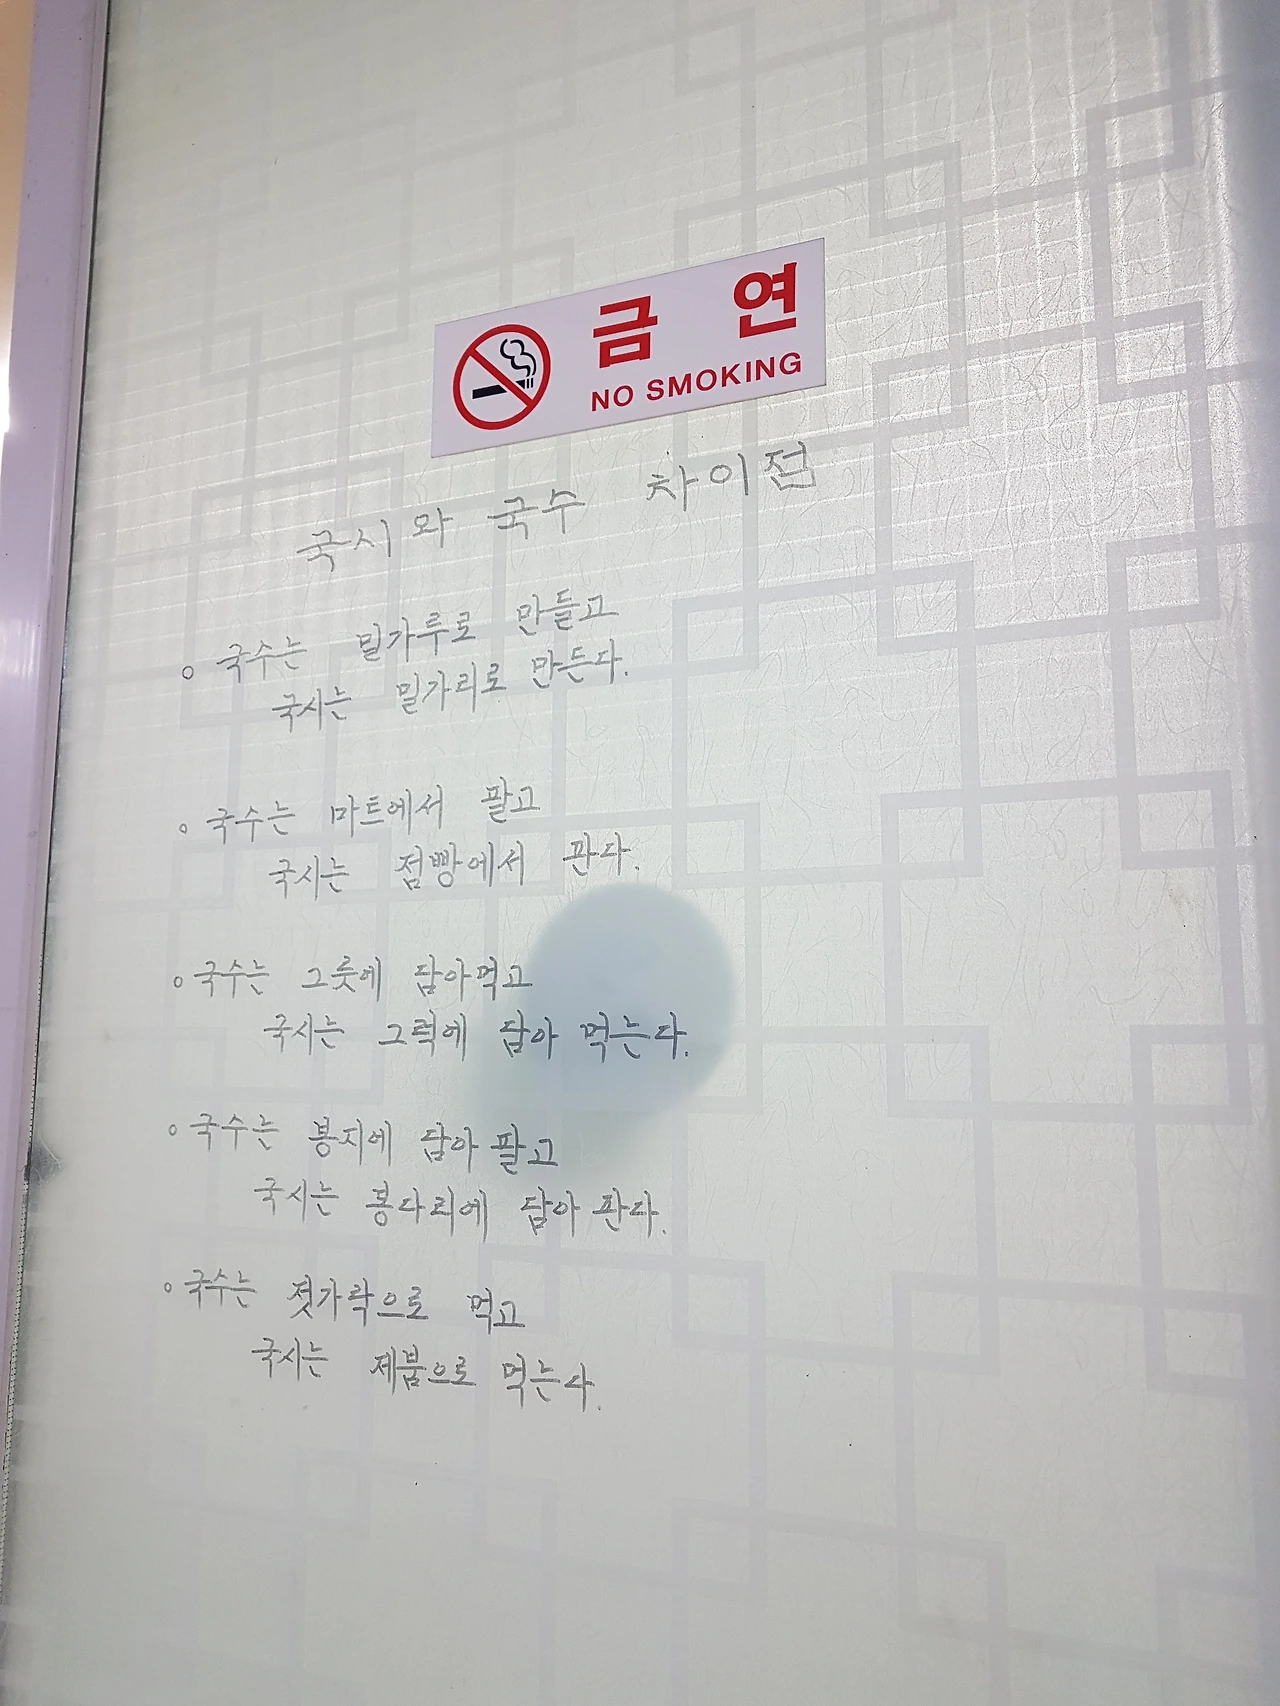 금 연
NO SMOKING
국시와 국수 차이점
○ 국수는 밀가루로 만들고
국시는 밀가리로 만든다.
○ 국수는 마트에서 팔고
국시는 점빵에서 판다.
○ 국수는 그릇에 담아먹고
국시는 그럭에 담아 먹는다.
○ 국수는 봉지에 담아 팔고
국시는 봉다리에 담아 판다.
○ 국수는 젓가락으로 먹고
국시는 제붐으로 먹는다.